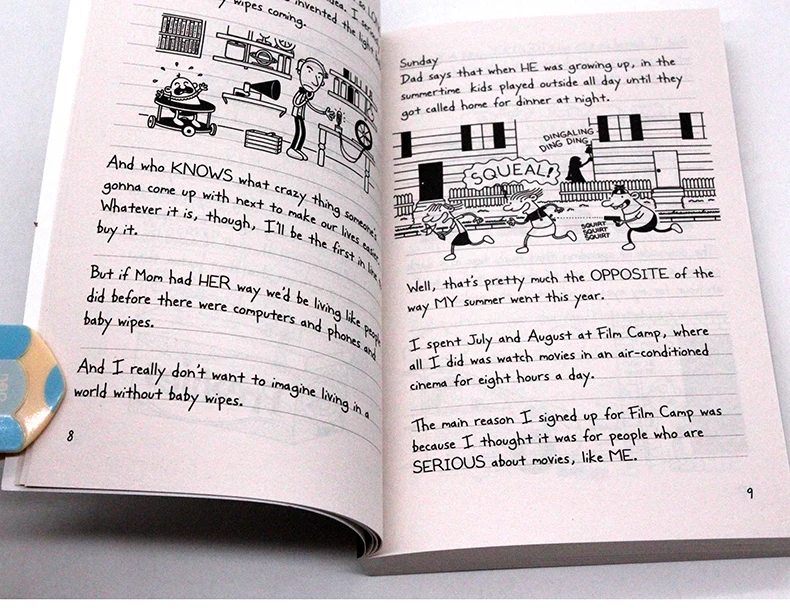 so LO
idea. I seri
s invented the light
y wipes coming.
And who KNOWS what crazy thing someone's
gonna come up with next to make our lives easier.
Whatever it is, though, I'll be the first in line
buy it.
But if Mom had HER way we'd be living like people
did before there were computers and phones and
baby wipes.
And I really don't want to imagine living in a
world without baby wipes.
8
Sunday
Dad says that when HE was growing up, in the
summertime kids played outside all day until they
got called home for dinner at night.
DINGALING
DING DING
SQUEAL!
SQUIRT
SQUIRT
SQUIRT
Well, that's pretty much the OPPOSITE of the
way MY summer went this year.
I spent July and August at Film Camp, where
all I did was watch movies in an air-conditioned
cinema for eight hours a day.
The main reason I signed up for Film Camp was
because I thought it was for people who are
SERIOUS about movies, like ME.
9